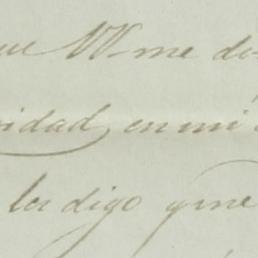 ue VV me di
idad, en mi
les digo que